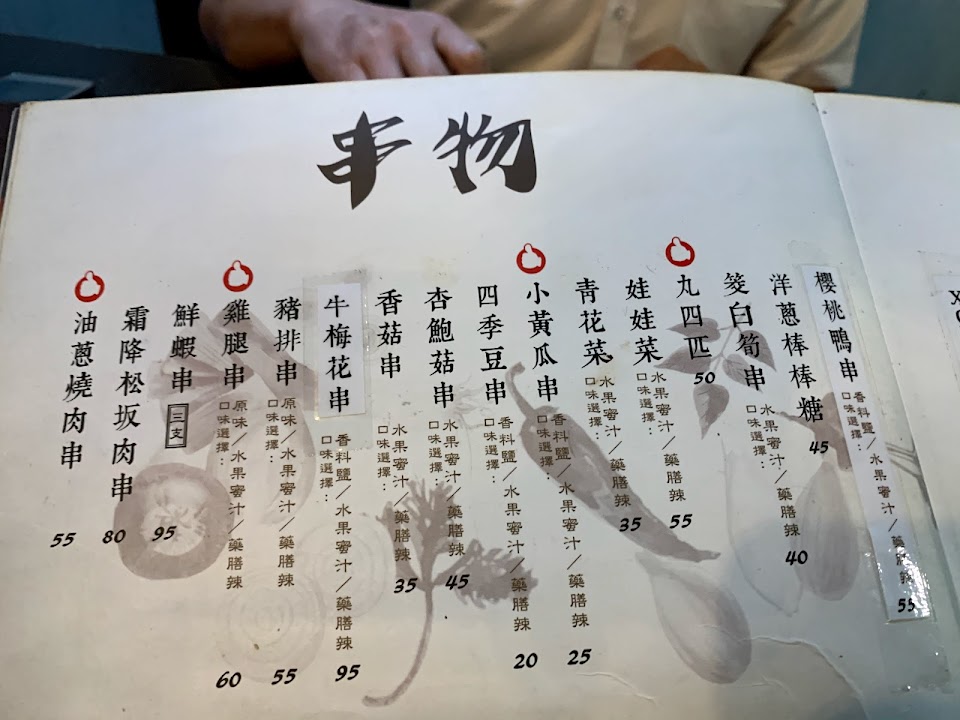 串物
櫻桃鴨串 口味選擇：香料鹽／水果蜜汁／藥膳辣 55
洋蔥棒棒糖 45
筊白筍串 口味選擇：水果蜜汁／藥膳辣 40
丸四匹 50
娃娃菜 口味選擇：水果蜜汁／藥膳辣 55
青花菜 口味選擇：水果蜜汁／藥膳辣 35
小黃瓜串 口味選擇：香料鹽／水果蜜汁／藥膳辣 25
四季豆串 口味選擇：香料鹽／水果蜜汁／藥膳辣 20
杏鮑菇串 口味選擇：水果蜜汁／藥膳辣 45
香菇串 口味選擇：水果蜜汁／藥膳辣 35
牛梅花串 口味選擇：香料鹽／水果蜜汁／藥膳辣 95
豬排串 口味選擇：原味／水果蜜汁／藥膳辣 55
雞腿串 口味選擇：原味／水果蜜汁／藥膳辣 60
鮮蝦串 二支 95
霜降松坂肉串 80
油蔥燒肉串 55